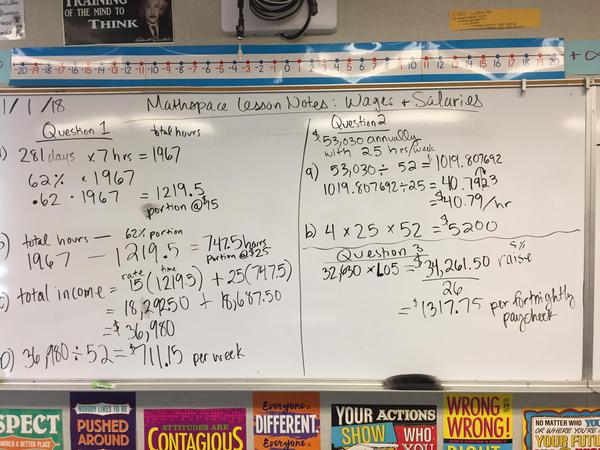 TRAINING
OF THE MIND TO
THINK
-20 -19 -18 -17 -16 -15 -14 -13 -12 -11 -10 -9 -8 -7 -6 -5 -4 -3 -2 -1 0 1 2 3 4 5 6 7 8 9 10 11 12 13 14 15 16 17 18 19 20
1/1/18
Mathspace Lesson Notes: Wages + Salaries
Question 1
total hours
281 days × 7 hrs = 1967
62% × 1967
.62 · 1967 = 1219.5
portion @ $15
62% portion
total hours —
1967 — 1219.5 = 747.5 hours
portion @ $25
rate time
total income = 15(1219.5) + 25(747.5)
= 18,292.50 + 18,687.50
= $36,980
D) 36,980 ÷ 52 = $711.15 per week
Question 2
$53,030 annually
with 25 hrs/week
a) 53,030 ÷ 52 = $1019.807692
1019.807692 ÷ 25 = 40.7923
= $40.79/hr
b) 4 × 25 × 52 = $5200
Question 3
5%
32,630 × 1.05 = $34,261.50 raise
26
= $1317.75 per fortnightly
paycheck
NOBODY LIKES TO BE
PUSHED
AROUND
ATTITUDES ARE
CONTAGIOUS
Everyone is
DIFFERENT.
Everyone is
YOUR ACTIONS
SHOW WHO
YOU
WRONG
WRONG!
NO MATTER WHO YOU
OR WHERE YOU'RE
YOUR FUTURE